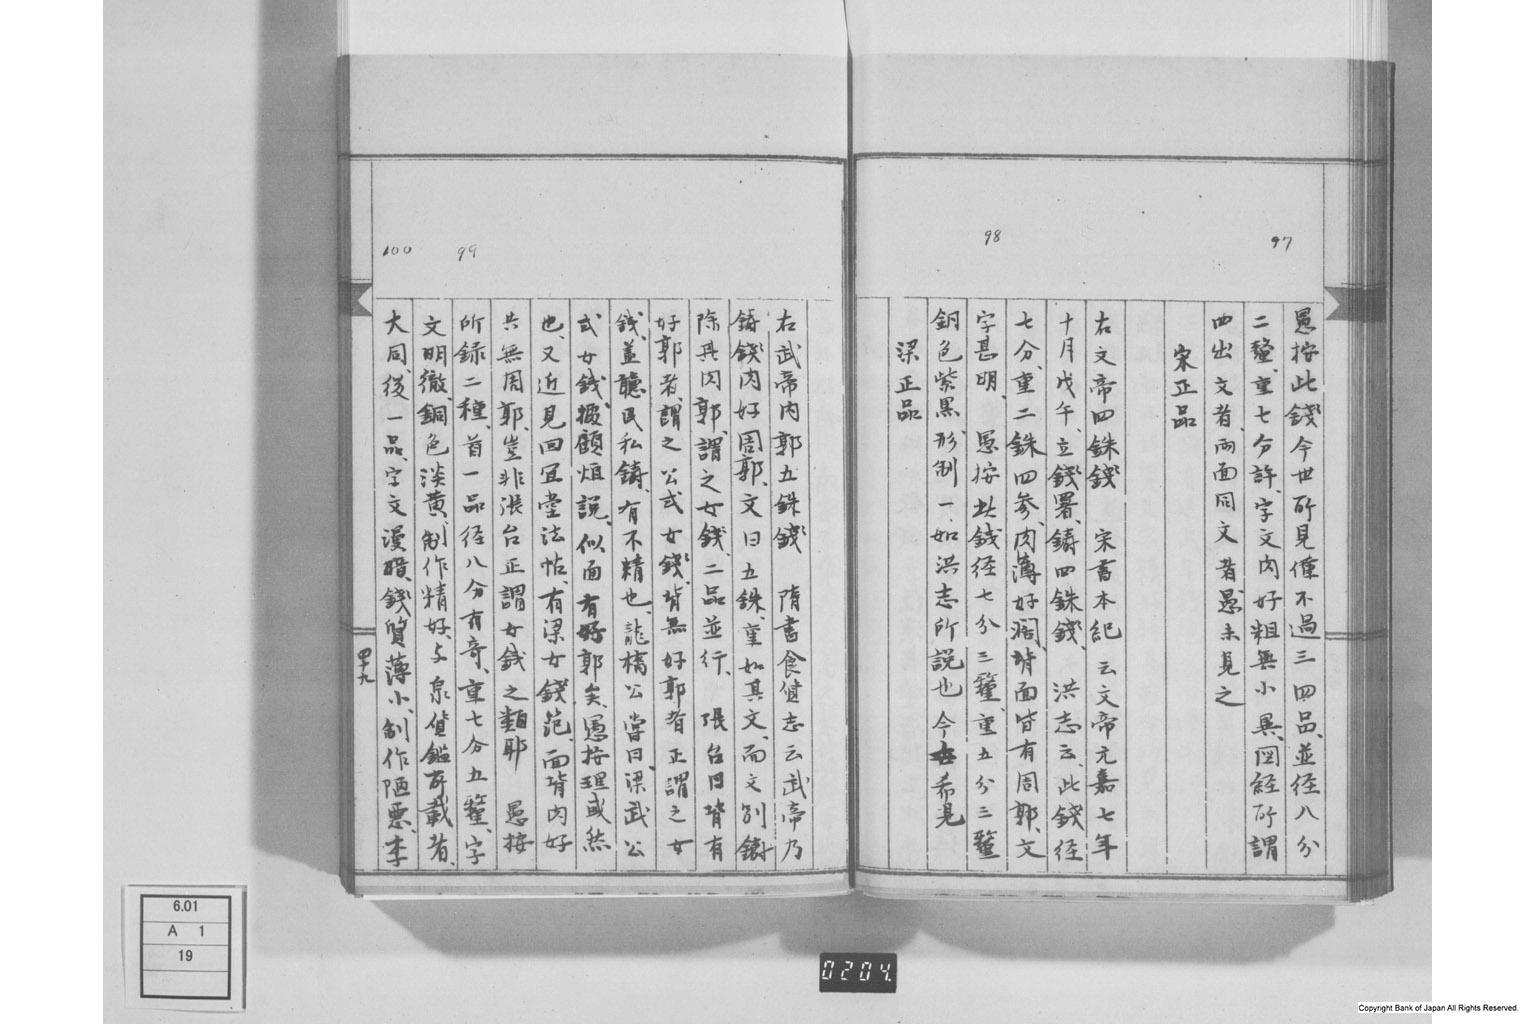 97
愚按此錢今世所見僅不過三四品、並径八分
二釐、重七分許、字文内好粗無小異、図経所謂
四出文者、兩面同文者、愚未見之
宋正品
98
右文帝四銖錢 宋書本紀云文帝元嘉七年
十月戊午、立錢署、鋳四銖錢、洪志云、此錢径
七分、重二銖四参、肉薄好濶、背面皆有周郭、文
字甚明、愚按此錢径七分三釐、重五分三釐
銅色紫黒、形制一如洪志所説也今希見
梁正品
99
右武帝内郭五銖錢 隋書食貨志云武帝乃
鋳錢肉好周郭、文曰五銖、重如其文、而文別鋳
除其肉郭、謂之女錢、二品並行、張台曰背有
好郭者、謂之公式女錢、背無好郭者正謂之女
錢、並聽民私鋳、有不精也、龍橋公嘗曰、梁武公
式女錢、掇顧烜説、似面有好郭矣、愚按理或然
也、又近見回冝堂法帖、有梁女錢范、面背内好
共無周郭、豈非張台正謂女錢之類耶 愚按
所録二種、首一品径八分有奇、重七分五釐、字
文明徹、銅色淡黄、制作精好、与泉貨鑑所載者、
100
大同、後一品、字文漫暗、錢質薄小、制作陋悪、李
四十九
6.01
A 1
19
0204.
Copyright Bank of Japan All Rights Reserved.